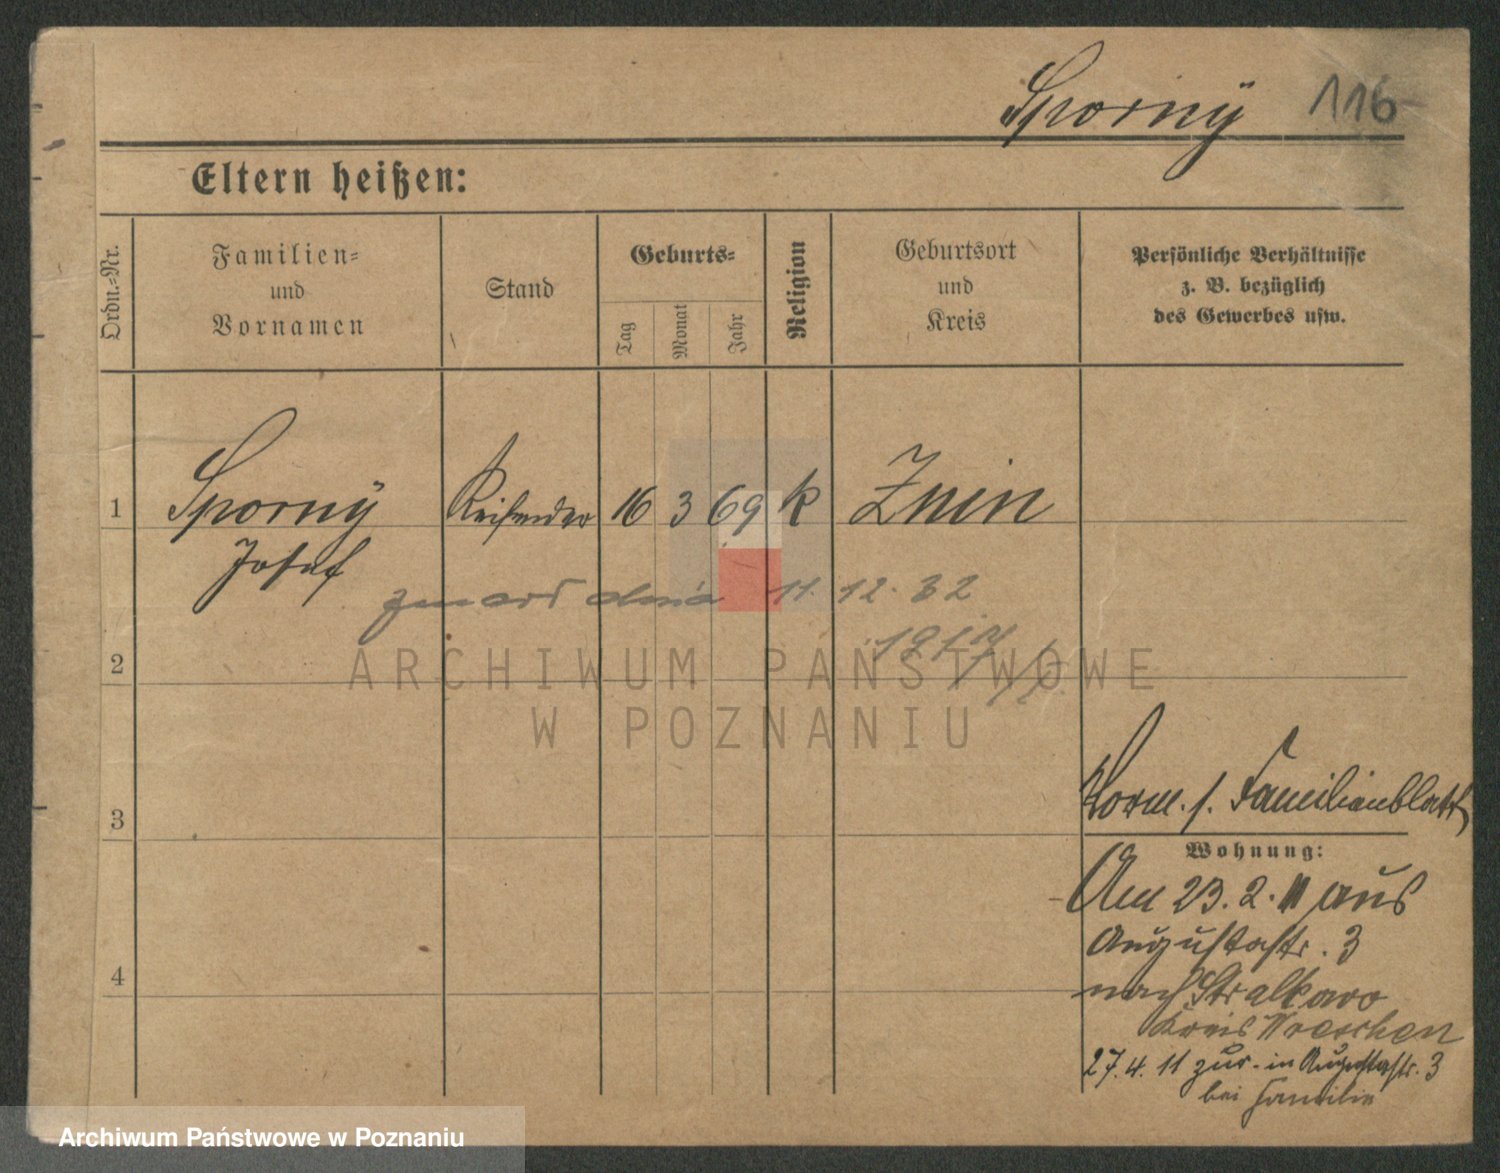 Sporny 116
Eltern heißen:
Ordn.-Nr.
Familien-
und
Vornamen
Stand
Geburts-
Tag
Monat
Jahr
Religion
Geburtsort
und
Kreis
Persönliche Verhältnisse
z. B. bezüglich
des Gewerbes usw.
1 Sporny Reisender 16 3 69 k Znin
Josef
zmarł dnia 11. 12. 32
1917
2
ARCHIWUM PAŃSTWOWE
W POZNANIU
3
Vorm. s. Familienblatt
Wohnung:
Am 23. 2. 11 aus
Augustastr. 3
nach
Kreis Wreschen
4
27. 4. 11 zur. in Augustastr. 3
bei Familie
Archiwum Państwowe w Poznaniu